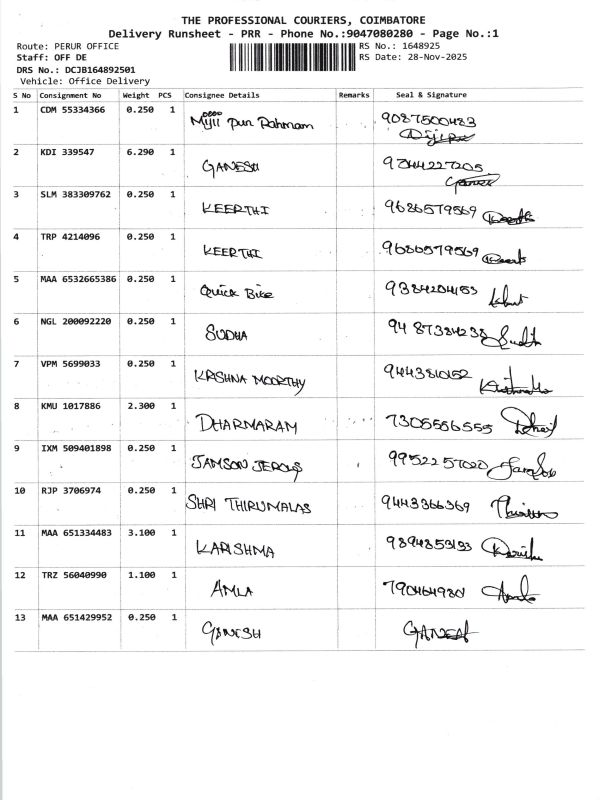 THE PROFESSIONAL COURIERS, COIMBATORE
Delivery Runsheet - PRR - Phone No.:9047080280 - Page No.:1
Route: PERUR OFFICE RS No.: 1648925
Staff: OFF DE RS Date: 28-Nov-2025
DRS No.: DCJB164892501
Vehicle: Office Delivery
S No Consignment No Weight PCS Consignee Details Remarks Seal & Signature
1 CDM 55334366 0.250 1 Pur Rahmam 9087500483
2 KDI 339547 6.290 1 GANESH 9744227205
3 SLM 383309762 0.250 1 KEERTHI 9686579569
4 TRP 4214096 0.250 1 KEERTHI 9686579569
5 MAA 6532665386 0.250 1 Quick Bike 9384204153
6 NGL 200092220 0.250 1 SUDHA 9487384238
7 VPM 5699033 0.250 1 KRISHNA MOORTHY 9443810152
8 KMU 1017886 2.300 1 DHARMARAM 7305556555
9 IXM 509401898 0.250 1 JAMSON 9952257020
10 RJP 3706974 0.250 1 SHRI THIRUMALAS 9443366369
11 MAA 651334483 3.100 1 KARISHMA 9894853193
12 TRZ 56040990 1.100 1 AMLA 790464980
13 MAA 651429952 0.250 1 GANESH GANESH